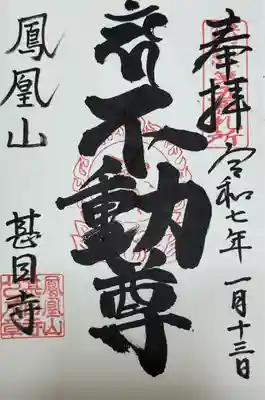 奉拝
令和七年一月十三日
不動尊
鳳凰山
甚目寺